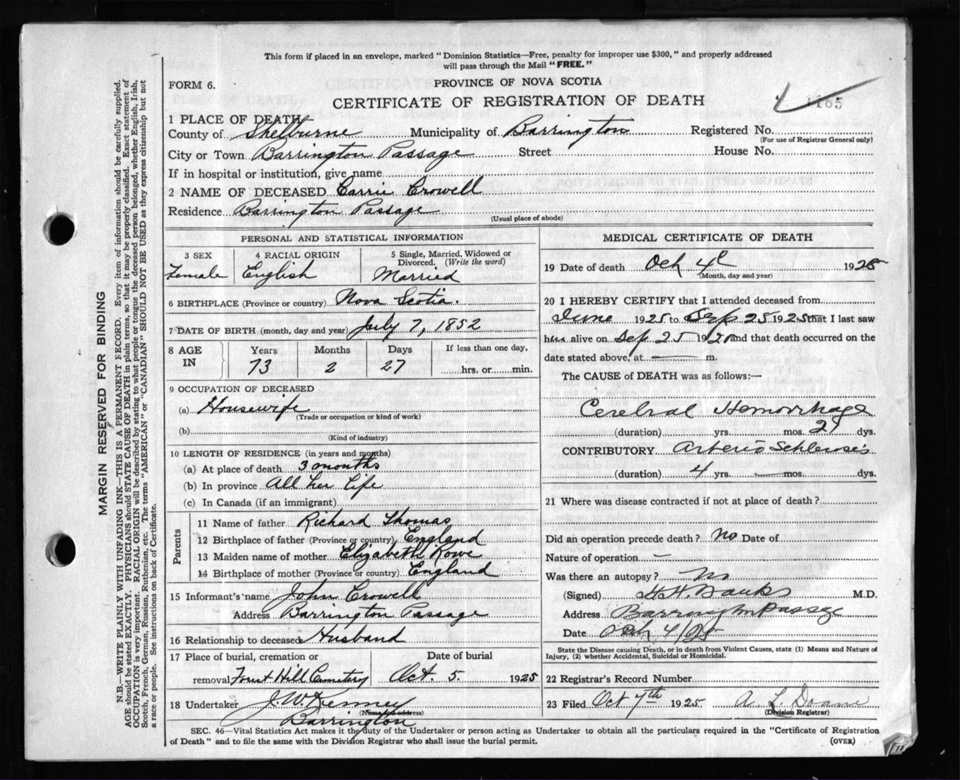 This form if placed in an envelope, marked "Dominion Statistics—Free, penalty for improper use $300," and properly addressed
will pass through the Mail "FREE."
FORM 6.
PROVINCE OF NOVA SCOTIA
CERTIFICATE OF REGISTRATION OF DEATH
1 PLACE OF DEATH
County of Shelburne Municipality of Barrington Registered No.
(For use of Registrar General only)
City or Town Barrington Passage Street House No.
If in hospital or institution, give name
2 NAME OF DECEASED Carrie Crowell
Residence Barrington Passage
(Usual place of abode)
MARGIN RESERVED FOR BINDING
N.B.—WRITE PLAINLY WITH UNFADING INK—THIS IS A PERMANENT RECORD. Every item of information should be carefully supplied.
AGE should be stated EXACTLY. PHYSICIANS should STATE CAUSE OF DEATH in plain terms, so that it may be properly classified. Exact statement of
OCCUPATION is very important. RACIAL ORIGIN will be described by stating to what people or tongue the deceased person belonged, whether English, Irish,
Scotch, French, German, Russian, Ruthenian, etc. The terms "AMERICAN" or "CANADIAN" SHOULD NOT BE USED as they express citizenship but not
a race or people. See instructions on back of Certificate.
PERSONAL AND STATISTICAL INFORMATION
3 SEX 4 RACIAL ORIGIN 5 Single, Married, Widowed or
Divorced. (Write the word)
Female English Married
6 BIRTHPLACE (Province or country) Nova Scotia.
7 DATE OF BIRTH (month, day and year) July 7, 1852
8 AGE IN Years Months Days If less than one day,
73 2 27 hrs. or min.
9 OCCUPATION OF DECEASED
(a) Housewife
(Trade or occupation or kind of work)
(b)
(Kind of industry)
10 LENGTH OF RESIDENCE (in years and months)
(a) At place of death 3 months
(b) In province All her life
(c) In Canada (if an immigrant)
Parents
11 Name of father Richard Thomas
12 Birthplace of father (Province or country) England
13 Maiden name of mother Elizabeth Rowe
14 Birthplace of mother (Province or country) England
15 Informant's name John Crowell
Address Barrington Passage
16 Relationship to deceased Husband
17 Place of burial, cremation or Date of burial
removal Hill Cemetery Oct. 5 1925
18 Undertaker J. W. Kenney
Barrington
MEDICAL CERTIFICATE OF DEATH
19 Date of death Oct 4 1925
(Month, day and year)
20 I HEREBY CERTIFY that I attended deceased from
June 1925 to Sep 25 1925 that I last saw
alive on Sep 25 and that death occurred on the
date stated above, at — m.
The CAUSE of DEATH was as follows:—
Cerebral Hemorrhage
(duration) yrs. mos. dys.
CONTRIBUTORY Arterio Schlerosis
(duration) 4 yrs. — mos. dys.
21 Where was disease contracted if not at place of death?
Did an operation precede death? No Date of
Nature of operation —
Was there an autopsy? No
(Signed) Banks M.D.
Address Barrington Passage
Date Oct 4/25
State the Disease causing Death, or in death from Violent Causes, state (1) Means and Nature of
Injury, (2) whether Accidental, Suicidal or Homicidal.
22 Registrar's Record Number
23 Filed Oct 7th 1925 A L Doane
(Division Registrar)
SEC. 46—Vital Statistics Act makes it the duty of the Undertaker or person acting as Undertaker to obtain all the particulars required in the "Certificate of Registration
of Death" and to file the same with the Division Registrar who shall issue the burial permit.
(OVER)